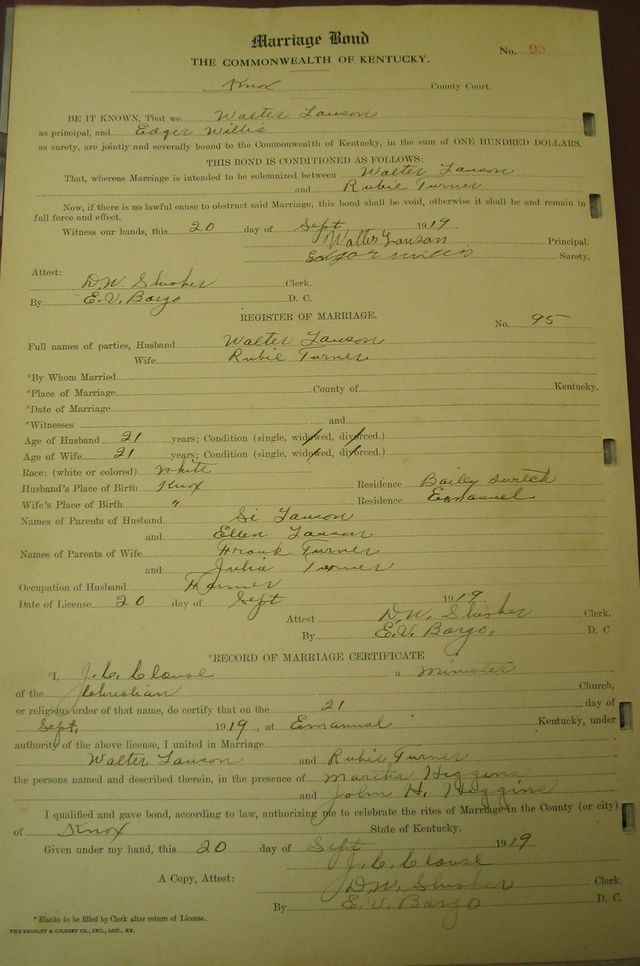 Marriage Bond
No. 95
THE COMMONWEALTH OF KENTUCKY.
Knox County Court.
BE IT KNOWN, That we Walter Lawson
as principal, and Edger Willis
as surety, are jointly and severally bound to the Commonwealth of Kentucky, in the sum of ONE HUNDRED DOLLARS.
THIS BOND IS CONDITIONED AS FOLLOWS:
That, whereas Marriage is intended to be solemnized between Walter Lawson
and Rubie Turner
Now, if there is no lawful cause to obstruct said Marriage, this bond shall be void, otherwise it shall be and remain in
full force and effect.
Witness our hands, this 20 day of Sept 1919.
Walter Lawson Principal.
Edgar Willis Surety.
Attest:
D.W. Slusher Clerk.
By E.V. Bargo D. C.
REGISTER OF MARRIAGE.
No. 95
Full names of parties, Husband Walter Lawson
Wife Rubie Turner
*By Whom Married
*Place of Marriage County of Kentucky.
*Date of Marriage
*Witnesses and
Age of Husband 21 years; Condition (single, widowed, divorced.)
Age of Wife 21 years; Condition (single, widowed, divorced.)
Race: (white or colored) White
Husband's Place of Birth Knox Residence Bailey
Wife's Place of Birth " Residence Emanuel
Names of Parents of Husband Si Lawson
and Ellen Lawson
Names of Parents of Wife Frank Turner
and Julie Turner
Occupation of Husband Farmer
Date of License 20 day of Sept 1919
Attest D.W. Slusher Clerk.
By E.V. Bargo, D. C
*RECORD OF MARRIAGE CERTIFICATE
*I, J.C. Clouse a Minister
of the Christian Church,
or religious order of that name, do certify that on the 21 day of
Sept, 1919, at Emanuel Kentucky, under
authority of the above license, I united in Marriage
Walter Lawson and Rubie Turner
the persons named and described therein, in the presence of Martha Higgins
and John H. Higgins
I qualified and gave bond, according to law, authorizing me to celebrate the rites of Marriage in the County (or city)
of Knox State of Kentucky.
Given under my hand, this 20 day of Sept 1919
J.C. Clouse
A Copy, Attest: D.W. Slusher Clerk.
By E.V. Bargo D. C.
*Blanks to be filled by Clerk after return of License.
THE BRADLEY & GILBERT CO., INC., LOU., KY.